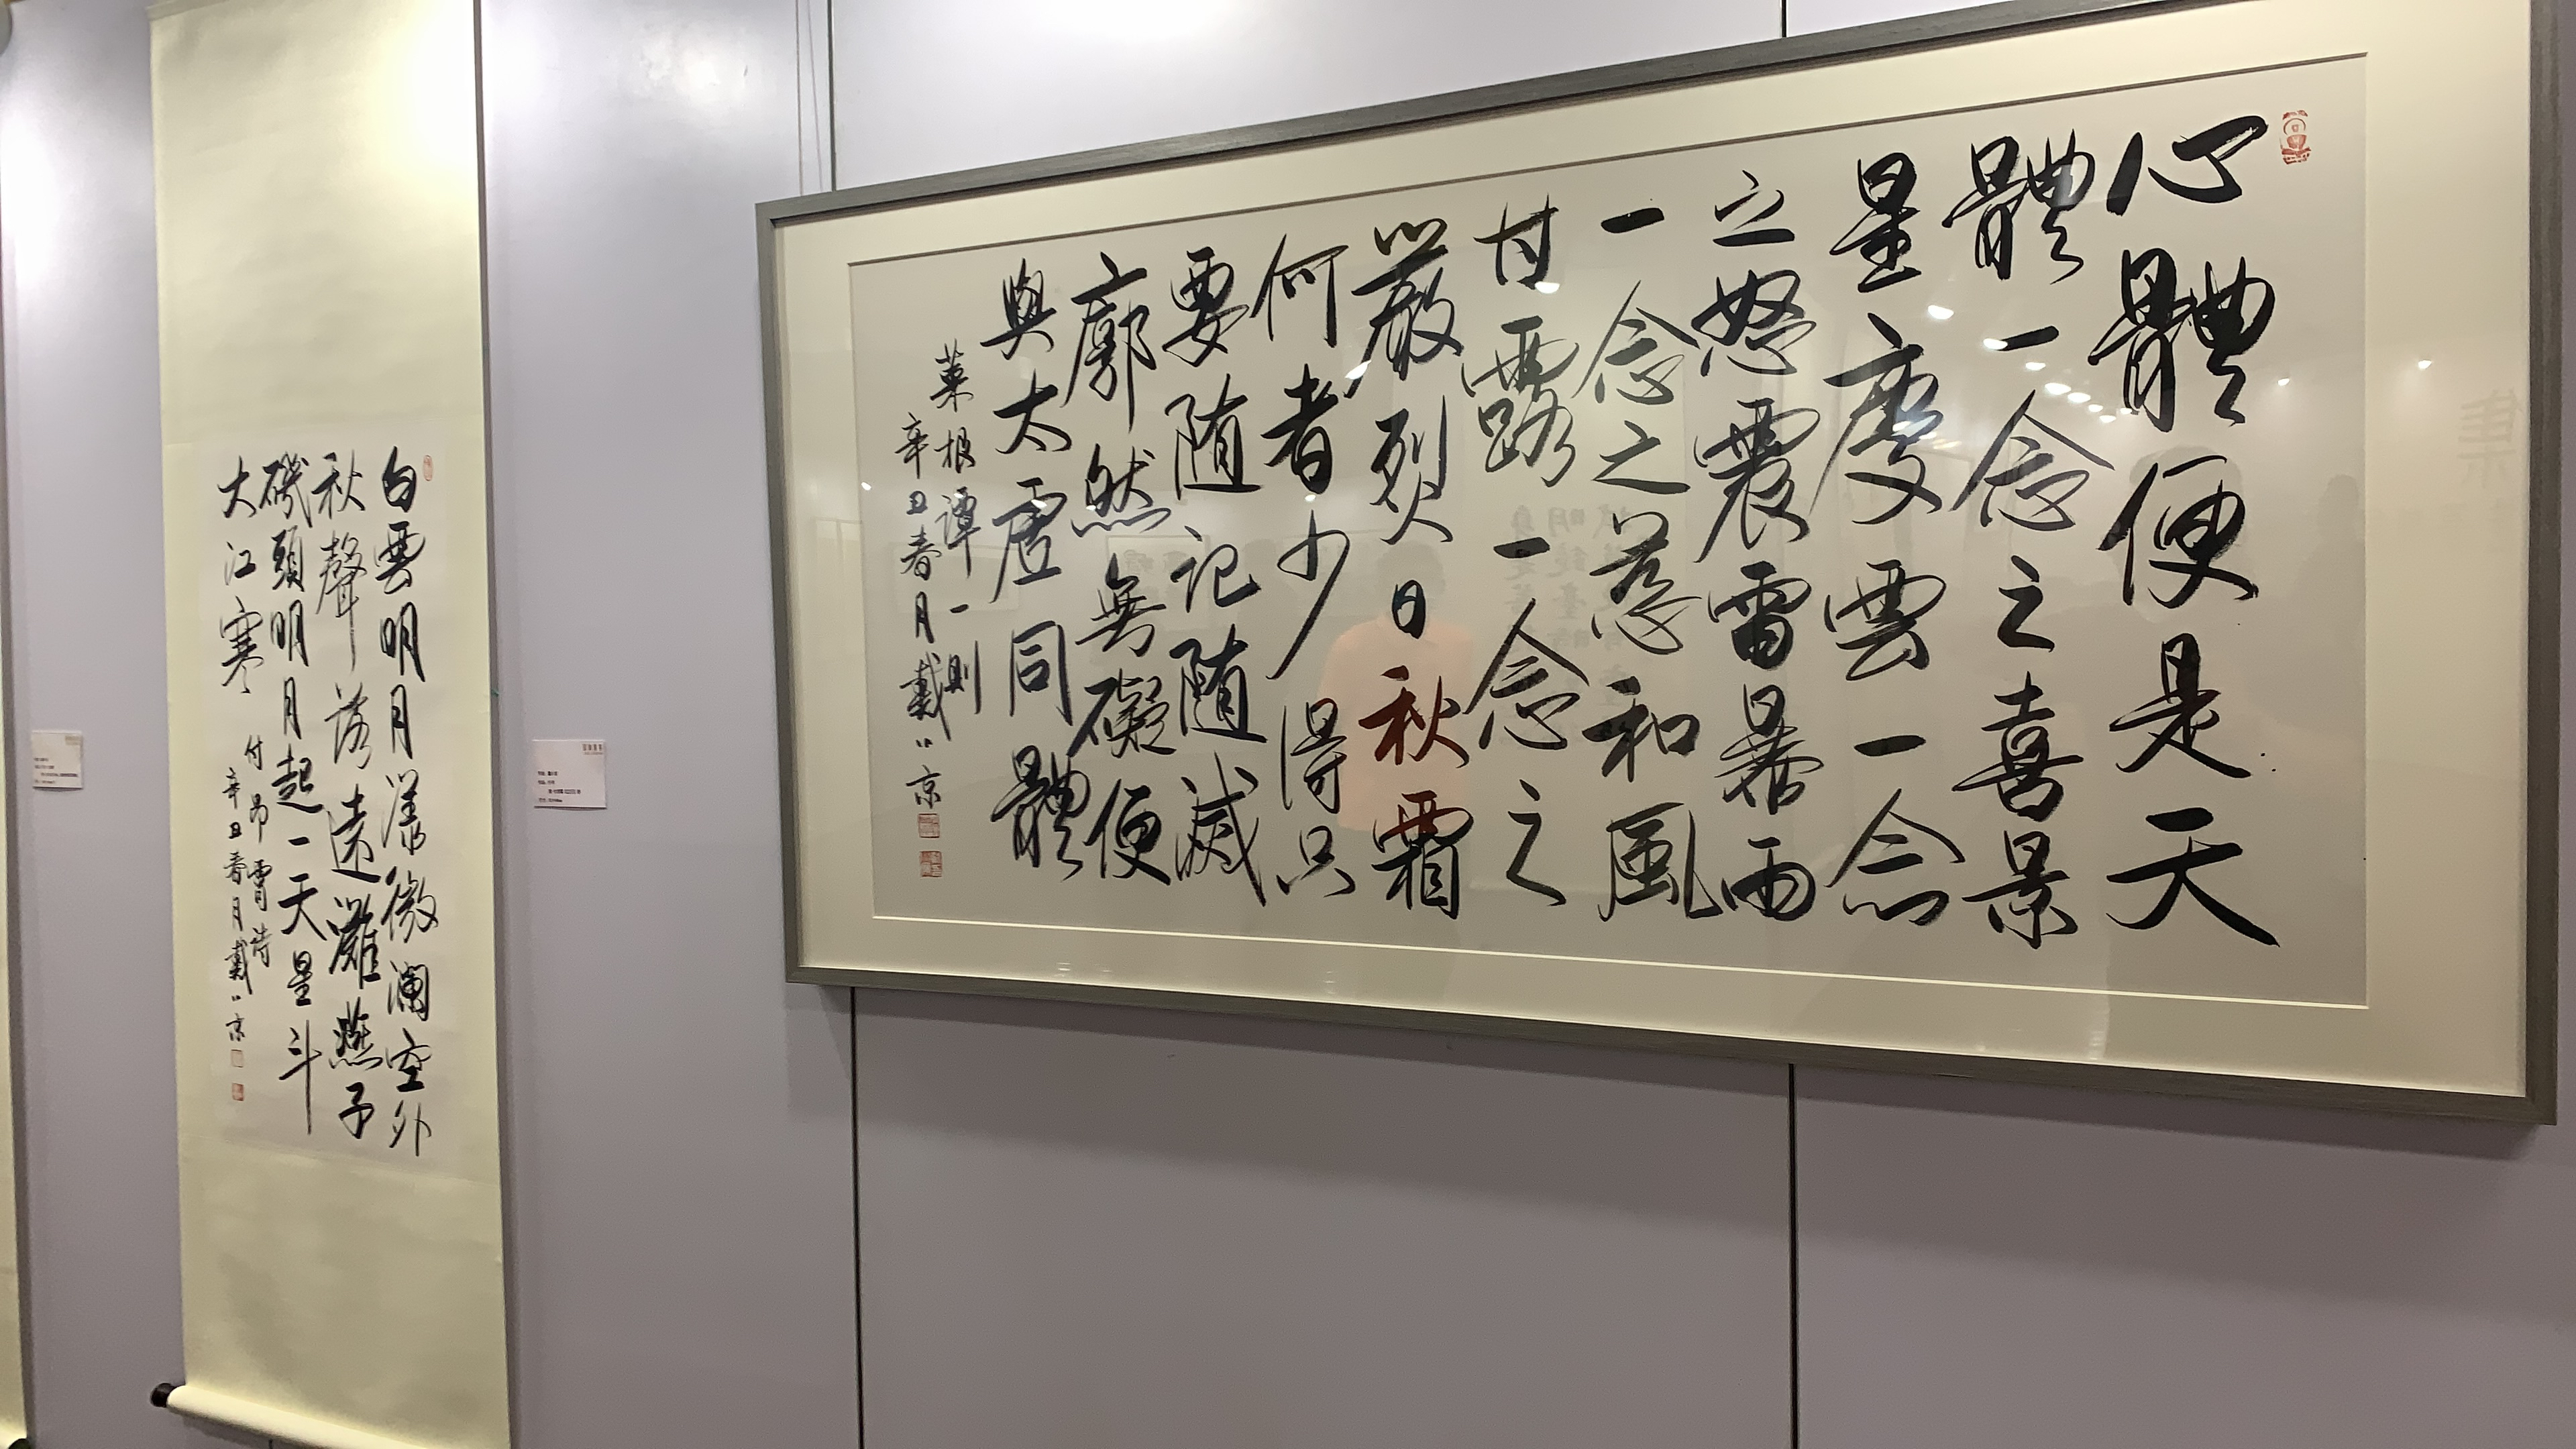 心體便是天
體一念之喜景
星慶雲一念
之怒震雷暴雨
一念之慈和風
甘露一念之
嚴烈日秋霜
何者少得只
要随记随滅
廓然無礙便
與太虚同體
菜根譚一則
辛丑春月戴小京
白雲明月漾微瀾空外
秋聲落遠灘燕子
磯頭明月起一天星斗
大江寒
付昂霄诗
辛丑春月戴小京